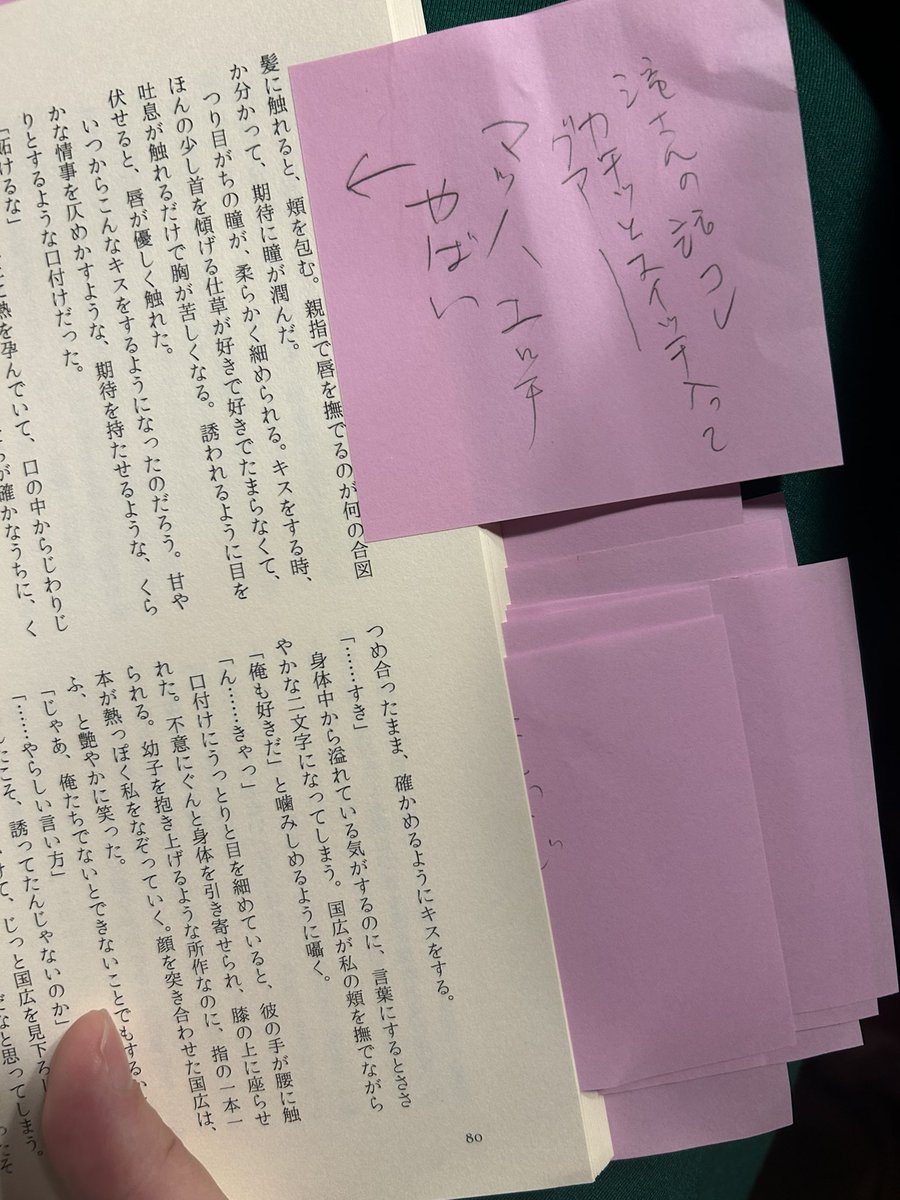 滝さんの話コレ
カチッとスイッチ入って
グア
マッハ、エロチ
やばい
←
髪に触れると、頬を包む。親指で唇を撫でるのが何の合図
か分かって、期待に瞳が潤んだ。
つり目がちの瞳が、柔らかく細められる。キスをする時、
ほんの少し首を傾げる仕草が好きで好きでたまらなくて、
吐息が触れるだけで胸が苦しくなる。誘われるように目を
伏せると、唇が優しく触れた。
いつからこんなキスをするようになったのだろう。甘や
かな情事を仄めかすような、期待を持たせるような、くら
りとするような口付けだった。
「妬けるな」
熱を孕んでいて、口の中からじわりじ
が確かなうちに、く
つめ合ったまま、確かめるようにキスをする。
「……すき」
身体中から溢れている気がするのに、言葉にするとささ
やかな二文字になってしまう。国広が私の頬を撫でながら
「俺も好きだ」と噛みしめるように囁く。
「ん……きゃっ」
口付けにうっとりと目を細めていると、彼の手が腰に触
れた。不意にぐんと身体を引き寄せられ、膝の上に座らせ
られる。幼子を抱き上げるような所作なのに、指の一本一
本が熱っぽく私をなぞっていく。顔を突き合わせた国広は、
ふ、と艶やかに笑った。
「じゃあ、俺たちでないとできないことでもするか
「……やらしい言い方」
こそ、誘ってたんじゃないのか」
けて、じっと国広を見下ろし
だなと思ってしまう。
80